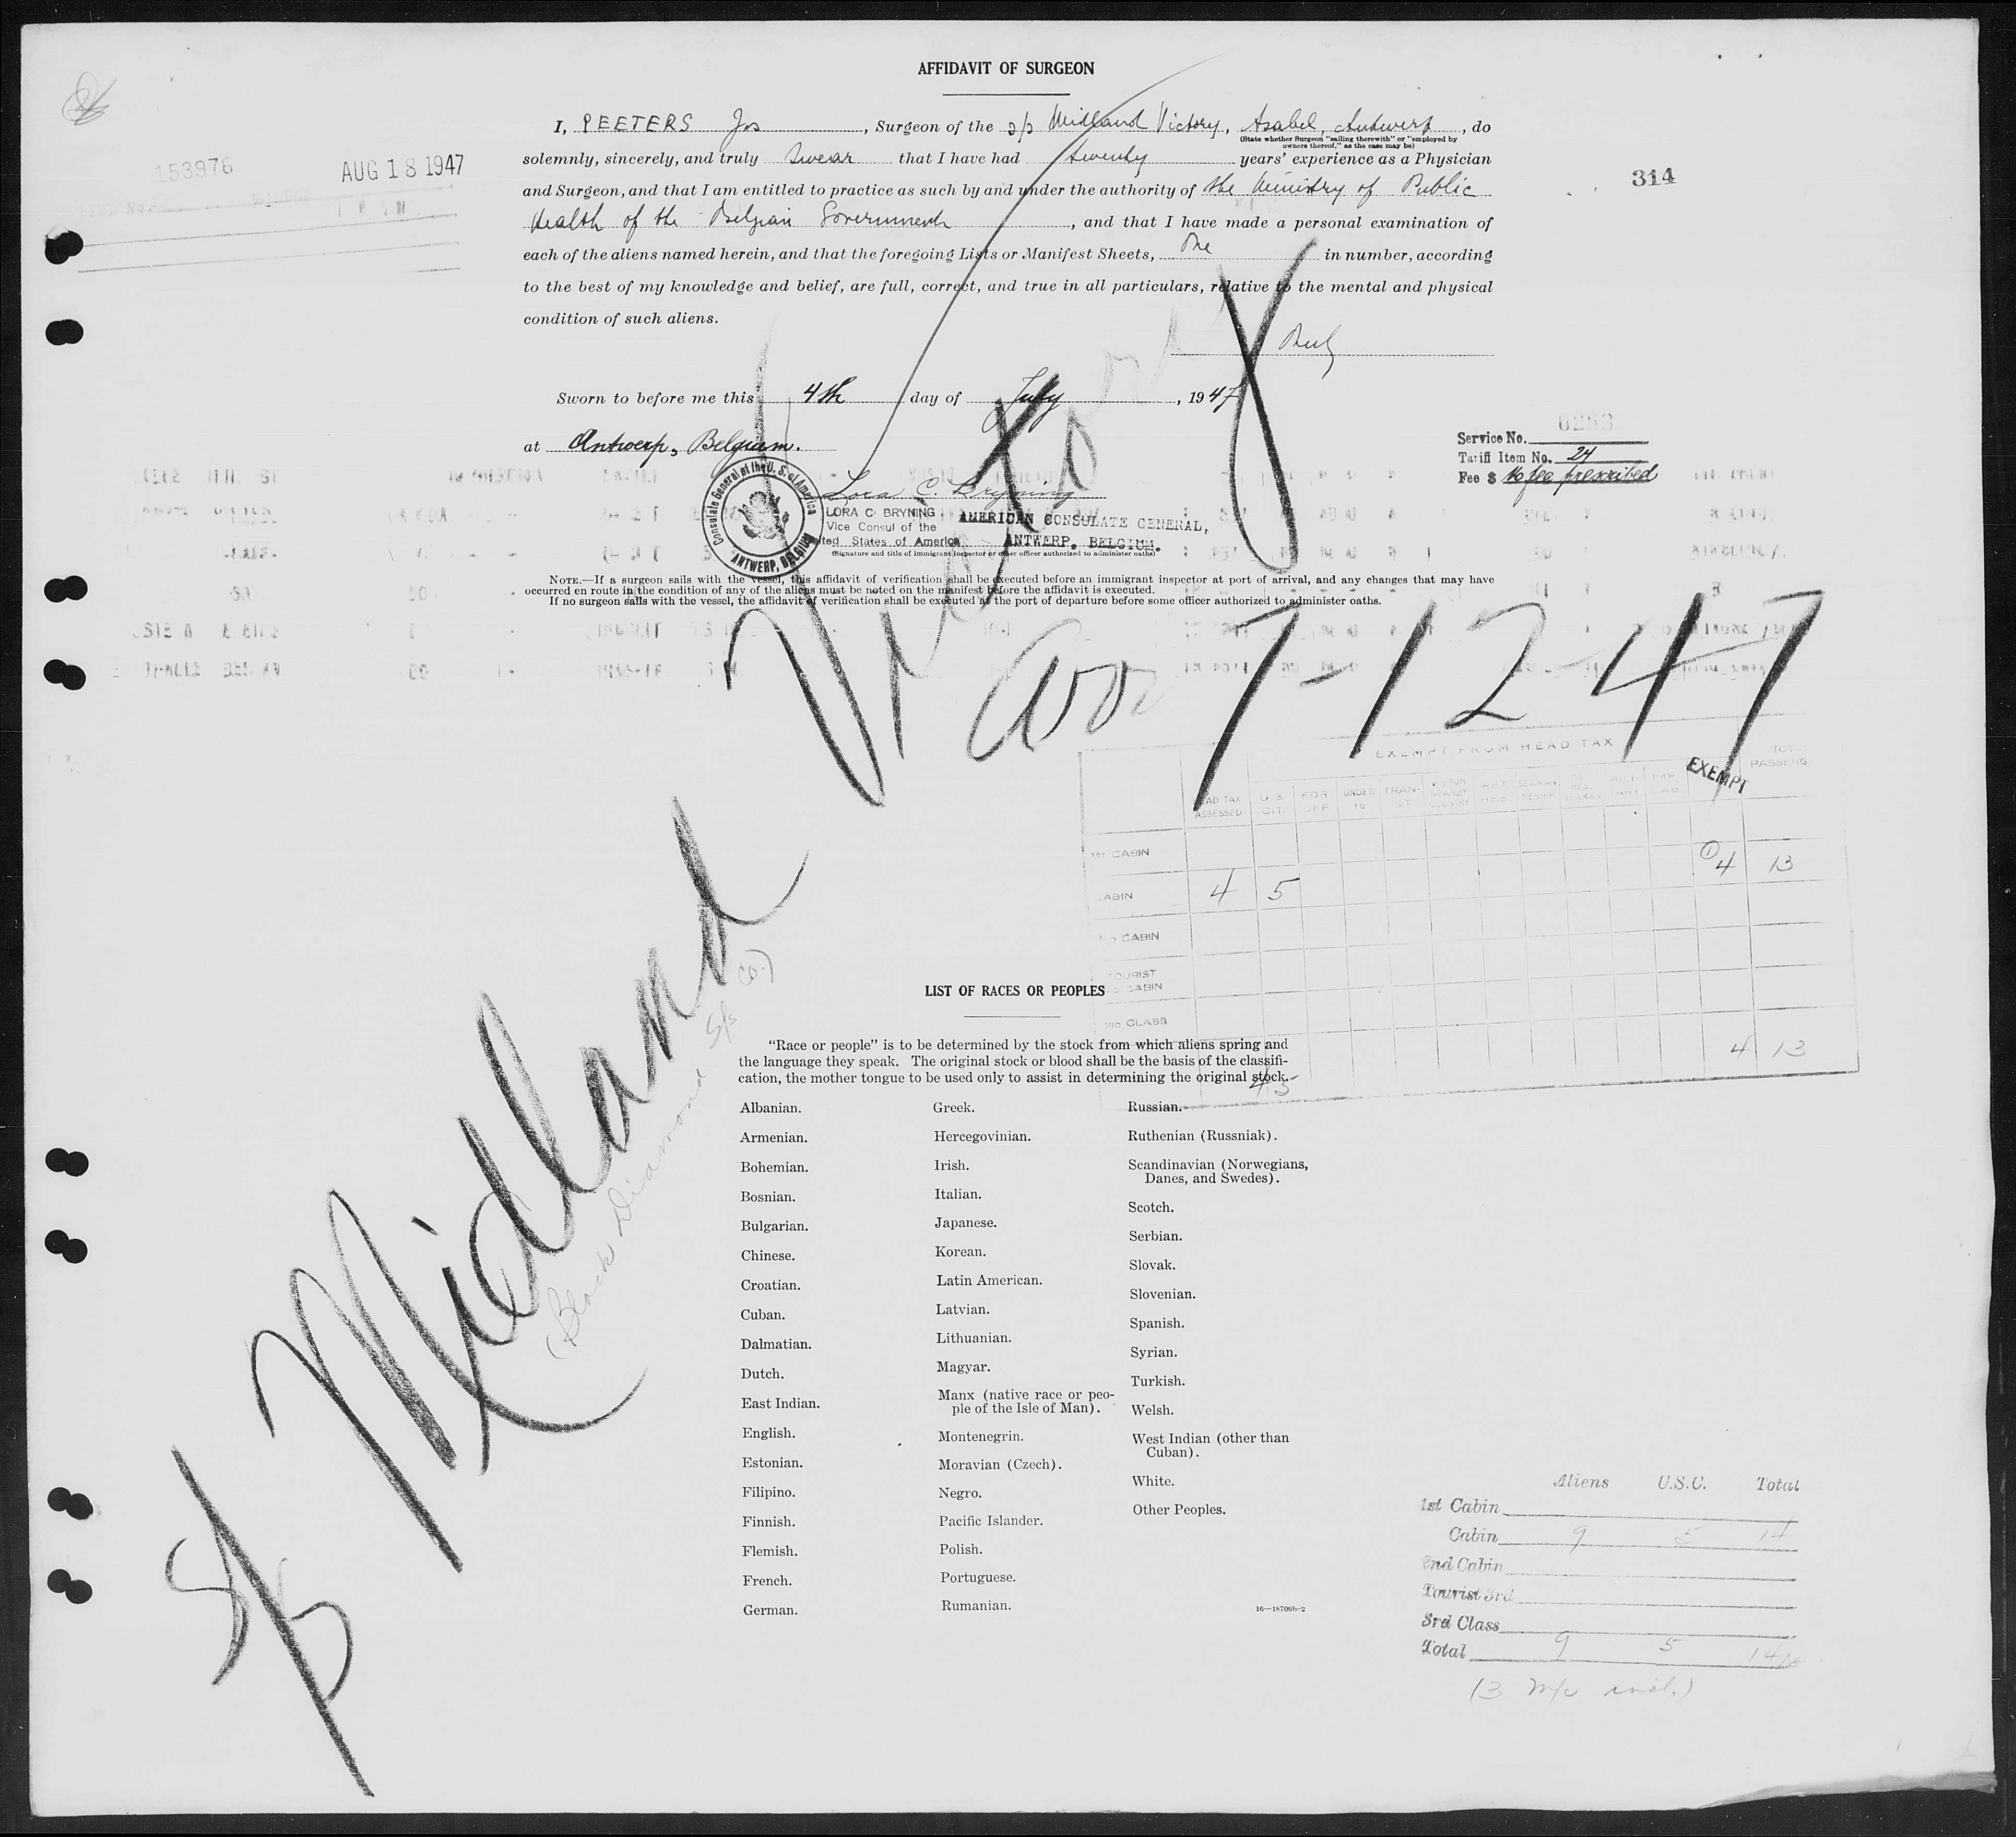 AFFIDAVIT OF SURGEON
I, PEETERS Jos, Surgeon of the s/s Midland Victory, Asabel, Antwerp, do
(State whether Surgeon "sailing therewith" or "employed by
owners thereof," as the case may be)
solemnly, sincerely, and truly swear that I have had twenty years' experience as a Physician
and Surgeon, and that I am entitled to practice as such by and under the authority of the Ministry of Public
Health of the Belgian Government, and that I have made a personal examination of
each of the aliens named herein, and that the foregoing Lists or Manifest Sheets, One in number, according
to the best of my knowledge and belief, are full, correct, and true in all particulars, relative to the mental and physical
condition of such aliens.
153976
AUG 18 1947
314
Sworn to before me this 4th day of July, 1947
at Antwerp, Belgium.
Service No.
Tariff Item No. 24
Fee $ No fee prescribed
Consulate General of the U. S. of America
ANTWERP, BELGIUM
Lora C. Bryning
LORA C. BRYNING
Vice Consul of the
United States of America
AMERICAN CONSULATE GENERAL,
ANTWERP, BELGIUM.
(Signature and title of immigrant inspector or other officer authorized to administer oaths)
NOTE.—If a surgeon sails with the vessel, this affidavit of verification shall be executed before an immigrant inspector at port of arrival, and any changes that may have
occurred en route in the condition of any of the aliens must be noted on the manifest before the affidavit is executed.
If no surgeon sails with the vessel, the affidavit of verification shall be executed at the port of departure before some officer authorized to administer oaths.
S/S Midland Victory
7-12-47
(Black Diamond S/S Co.)
EXEMPT FROM HEAD TAX
HEAD TAX ASSESSED
U.S. CIT.
FOR OFF
UNDER 16
TRANSIT
VISITOR NEARBY COUNTRY
EXEMPT
TOTAL PASSENG
1ST CABIN ① 4 13
CABIN 4 5
CABIN
TOURIST
CABIN
3RD CLASS
4 5 4 13
LIST OF RACES OR PEOPLES
"Race or people" is to be determined by the stock from which aliens spring and
the language they speak. The original stock or blood shall be the basis of the classifi-
cation, the mother tongue to be used only to assist in determining the original stock.
Albanian.
Armenian.
Bohemian.
Bosnian.
Bulgarian.
Chinese.
Croatian.
Cuban.
Dalmatian.
Dutch.
East Indian.
English.
Estonian.
Filipino.
Finnish.
Flemish.
French.
German.
Greek.
Hercegovinian.
Irish.
Italian.
Japanese.
Korean.
Latin American.
Latvian.
Lithuanian.
Magyar.
Manx (native race or peo-
ple of the Isle of Man).
Montenegrin.
Moravian (Czech).
Negro.
Pacific Islander.
Polish.
Portuguese.
Rumanian.
Russian.
Ruthenian (Russniak).
Scandinavian (Norwegians,
Danes, and Swedes).
Scotch.
Serbian.
Slovak.
Slovenian.
Spanish.
Syrian.
Turkish.
Welsh.
West Indian (other than
Cuban).
White.
Other Peoples.
16—18709b-2
Aliens U.S.C. Total
1st Cabin
Cabin 9 5 14
2nd Cabin
Tourist 3rd
3rd Class
Total 9 5 14